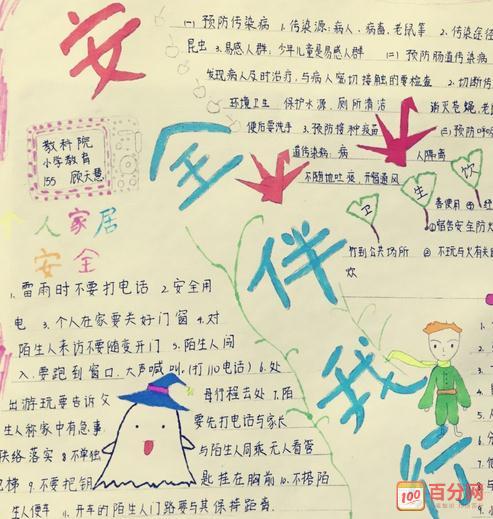 安全伴我行
(一) 预防传染病 1.传染源:病人、病毒、老鼠等 2.传染途径
昆虫 3.易感人群:少年儿童是易感人群 (二) 预防肠道传染病
发现病人及时治疗,与病人密切接触的要检查 2.切断传
环境卫生 保护水源、厕所清洁 消灭苍蝇、老
便后要洗手 3.预防接种疫苗 (三) 预防呼
道传染病:病 人隔离
不随地吐痰、开窗通风
卫
生
饮
竹到公共场所 ② 不玩与火有关
教科院
小学教育
155 顾天慧
个人家居
安全
1.雷雨时不要打电话 2.安全用
电 3.个人在家要关好门窗 4.对
陌生人来访不要随变开门 5.陌生人闯
入,要跑到窗口,大声喊叫(打110电话) 6.外
出游玩要告诉父 母行程去处 7.陌
生人称家中有急事 要先打电话与家长
联络落实 8.不单独 与陌生人同乘无人看管
电梯 9.不要把钥 匙挂在胸前 10.不搭陌
生人便车 11.开车的陌生人门路要与其保持距离.
100 百分网